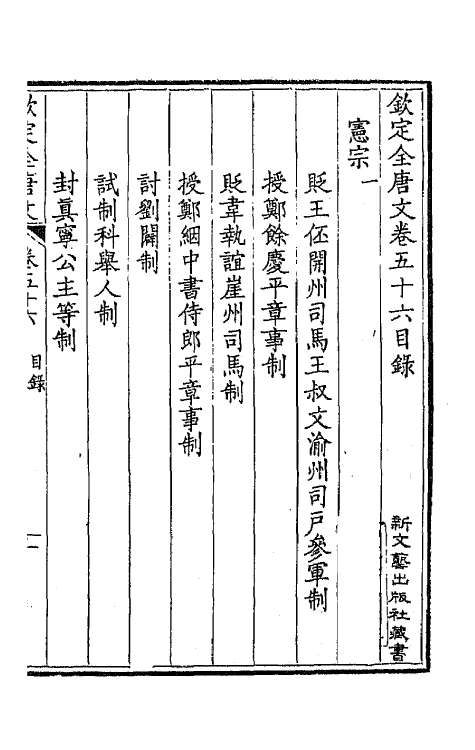 欽定全唐文卷五十六目錄
新文藝出版社藏書
憲宗一
貶王伾開州司馬王叔文渝州司戸參軍制
授鄭餘慶平章事制
貶韋執誼崖州司馬制
授鄭絪中書侍郎平章事制
討劉闢制
試制科舉人制
封真寧公主等制
欽定全唐文 卷五十六 目錄 一